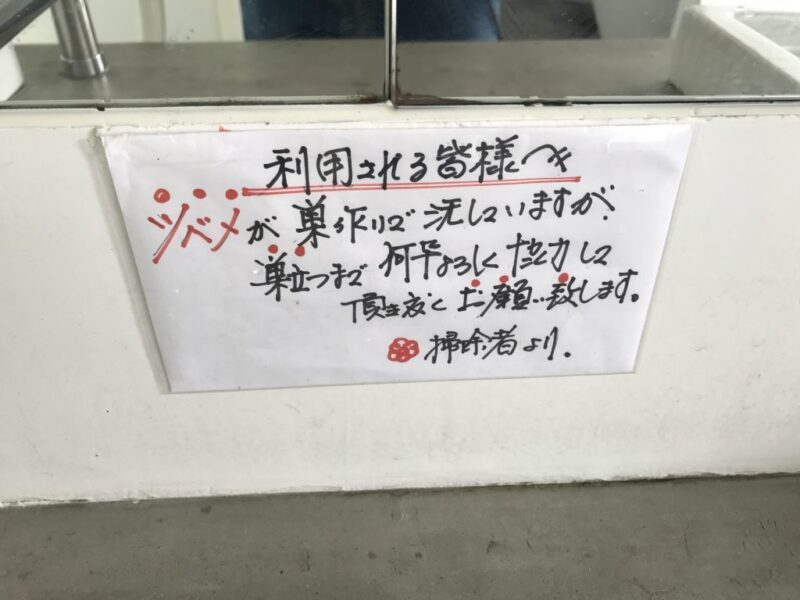 利用される皆様へ
ツバメが巣作りで汚していますが、
巣立つまで何卒よろしく協力して
頂き度くお願い致します。
掃除者より。